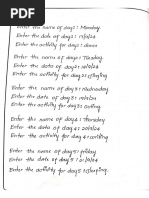 Enter the name of day1 : Monday
Enter the date of day1 :
Enter the activity for day1 : dance
Enter the name of day2 : Tuesday
Enter the date of day2 :
Enter the activity for day2 : playing
Enter the name of day3 : Wednesday
Enter the date of day3 :
Enter the activity for day3 :
Enter the name of day4 : Thursday
Enter the date of day4 :
Enter the activity for day4 :
Enter the name of day5 : friday
Enter the date of day5 :
Enter the activity for day5 : sleeping.